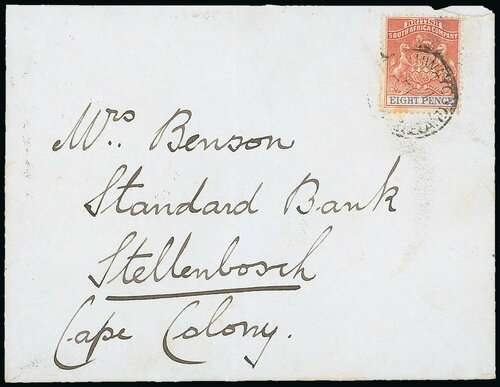 BRITISH
SOUTH AFRICA COMPANY
EIGHT PENCE
Mrs. Benson
Standard Bank
Stellenbosch
Cape Colony.